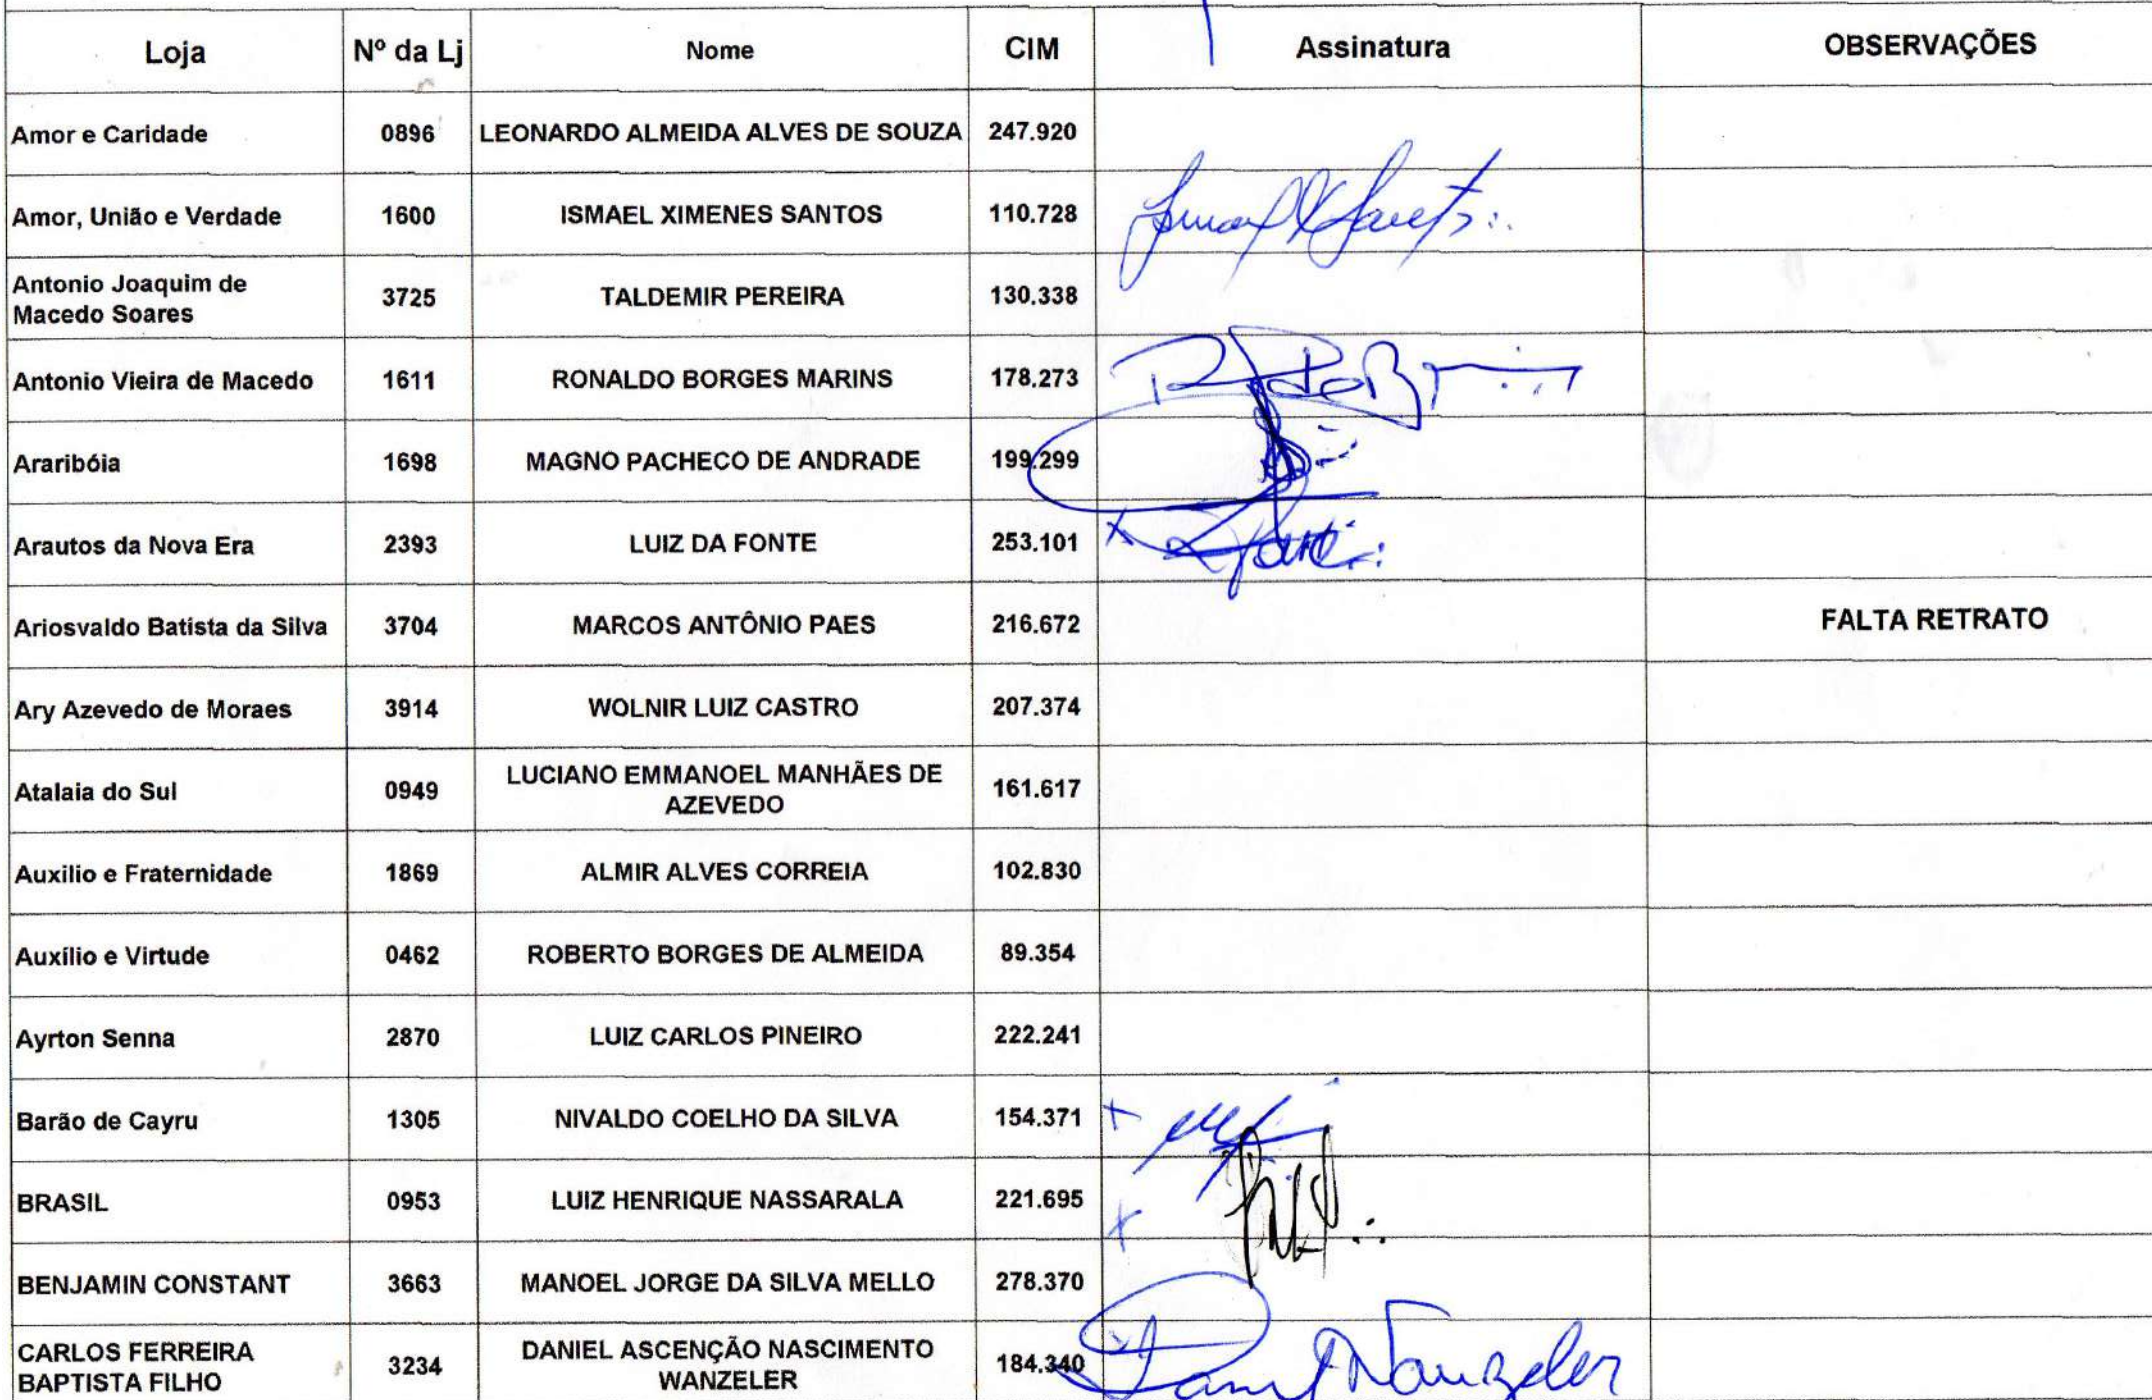 Loja Nº da Lj Nome CIM Assinatura OBSERVAÇÕES
Amor e Caridade 0896 LEONARDO ALMEIDA ALVES DE SOUZA 247.920
Amor, União e Verdade 1600 ISMAEL XIMENES SANTOS 110.728
Antonio Joaquim de
Macedo Soares 3725 TALDEMIR PEREIRA 130.338
Antonio Vieira de Macedo 1611 RONALDO BORGES MARINS 178.273
Araribóia 1698 MAGNO PACHECO DE ANDRADE 199.299
Arautos da Nova Era 2393 LUIZ DA FONTE 253.101
Ariosvaldo Batista da Silva 3704 MARCOS ANTÔNIO PAES 216.672 FALTA RETRATO
Ary Azevedo de Moraes 3914 WOLNIR LUIZ CASTRO 207.374
Atalaia do Sul 0949 LUCIANO EMMANOEL MANHÃES DE
AZEVEDO 161.617
Auxilio e Fraternidade 1869 ALMIR ALVES CORREIA 102.830
Auxílio e Virtude 0462 ROBERTO BORGES DE ALMEIDA 89.354
Ayrton Senna 2870 LUIZ CARLOS PINEIRO 222.241
Barão de Cayru 1305 NIVALDO COELHO DA SILVA 154.371
BRASIL 0953 LUIZ HENRIQUE NASSARALA 221.695
BENJAMIN CONSTANT 3663 MANOEL JORGE DA SILVA MELLO 278.370
CARLOS FERREIRA
BAPTISTA FILHO 3234 DANIEL ASCENÇÃO NASCIMENTO
WANZELER 184.340 Wanzeler